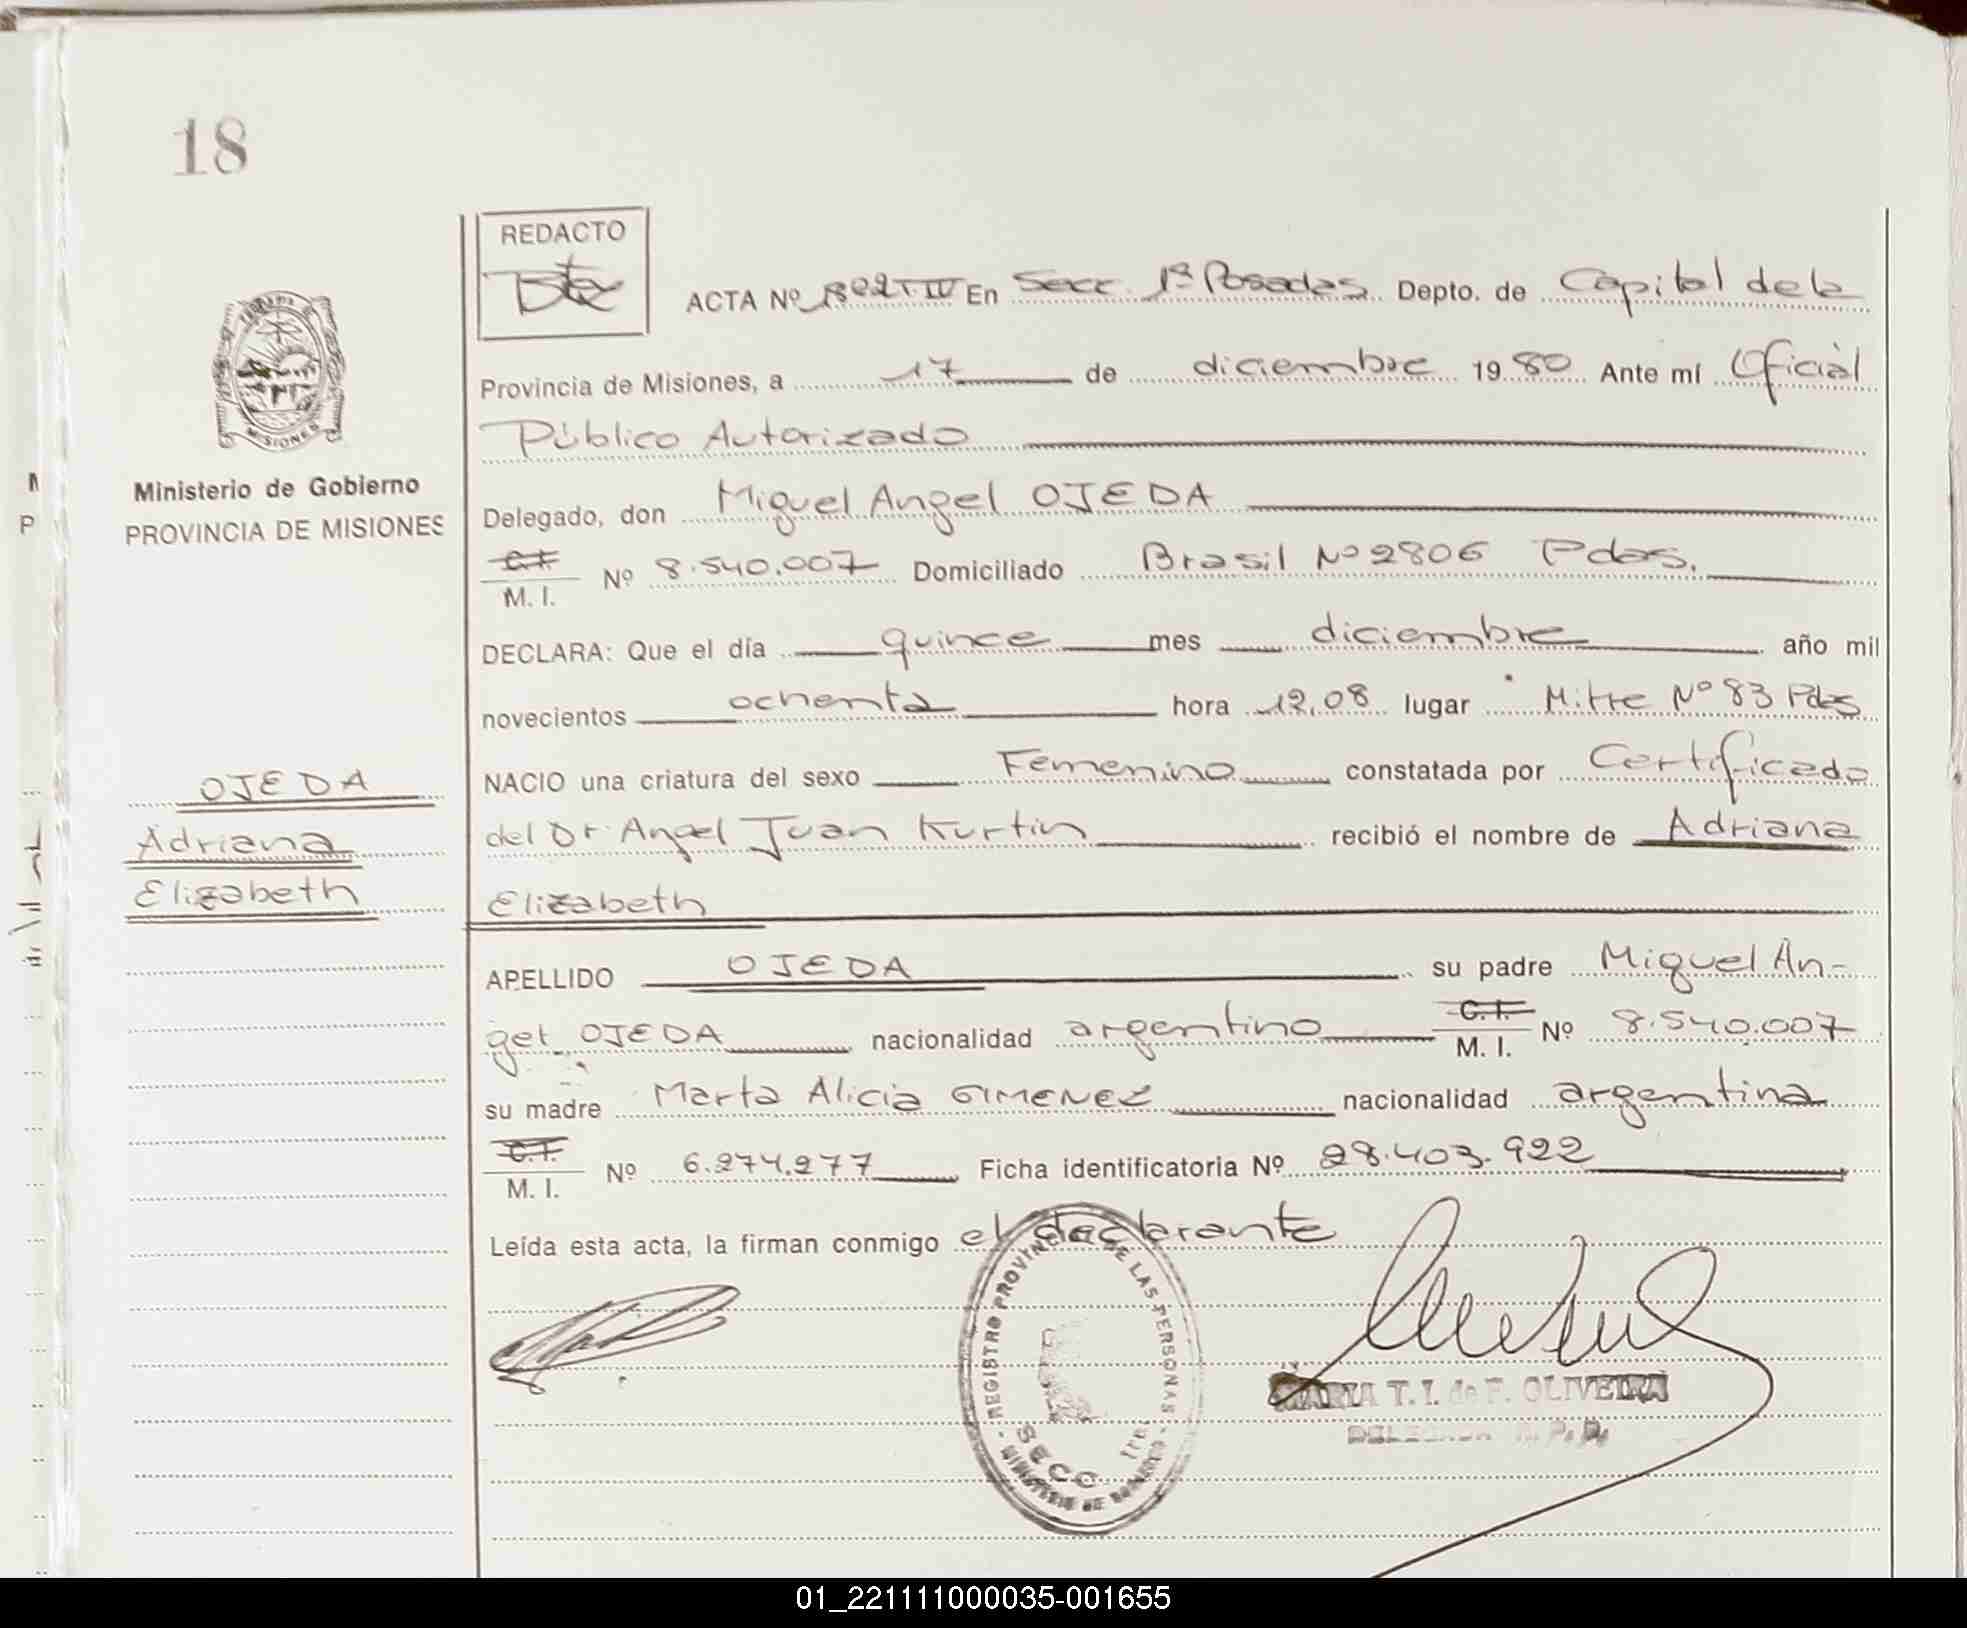 18
REDACTO
ACTA Nº 1802 T IV En Secc. 1ª Posadas Depto. de Capital de la
Provincia de Misiones, a 17 de diciembre 1980 Ante mí Oficial
Público Autorizado
Delegado, don Miguel Angel OJEDA
C.I.
M. I. Nº 8.540.007 Domiciliado Brasil Nº 2806 Pdas.
DECLARA: Que el día quince mes diciembre año mil
novecientos ochenta hora 12,08 lugar Mitre Nº 83 Pdas
NACIO una criatura del sexo Femenino constatada por Certificado
del Dr. Angel Juan Kurtin recibió el nombre de Adriana
Elizabeth
APELLIDO OJEDA su padre Miguel An-
gel OJEDA nacionalidad argentino C.I. M. I. Nº 8.540.007
su madre Marta Alicia GIMENEZ nacionalidad argentina
C.I.
M. I. Nº 6.274.277 Ficha identificatoria Nº 28.403.922
Leída esta acta, la firman conmigo el declarante
Ministerio de Gobierno
PROVINCIA DE MISIONES
OJEDA
Adriana
Elizabeth
MISIONES
REGISTRO PROVINCIAL DE LAS PERSONAS
SECC
MINISTERIO DE GOBIERNO
MARIA T. I. de F. OLIVEIRA
DELEGADA R. P. P.
01_221111000035-001655